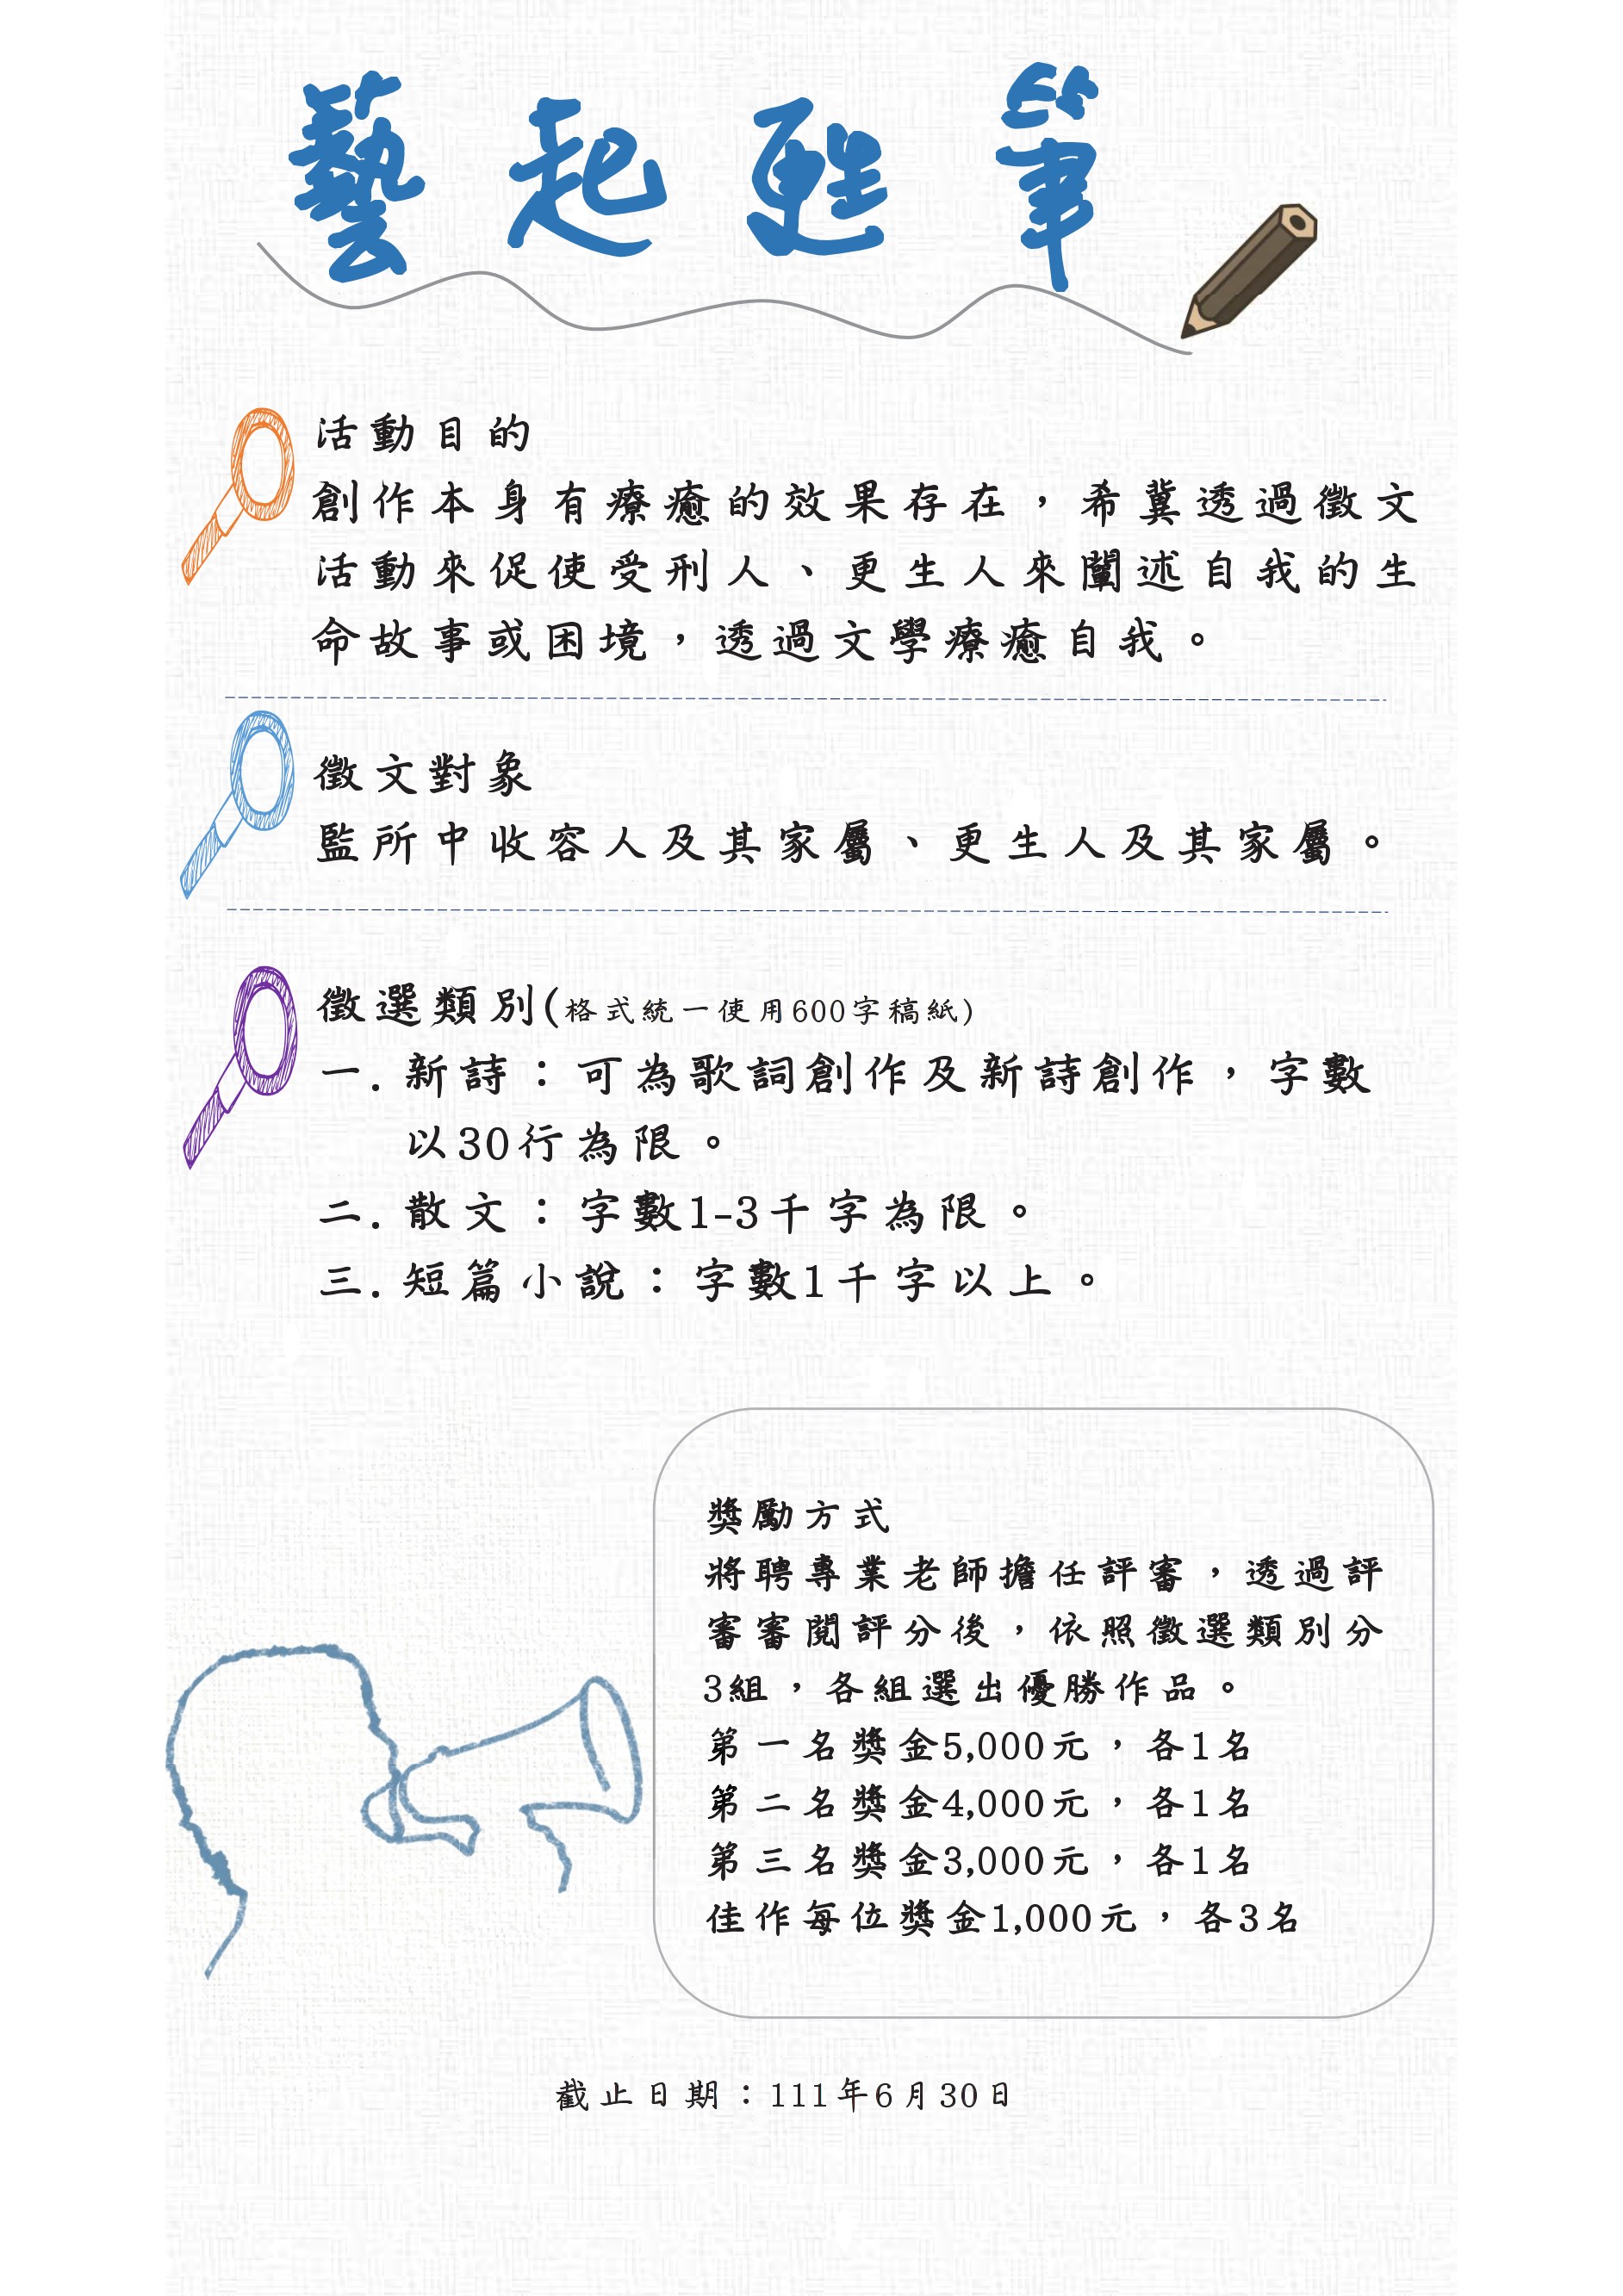 藝起甦筆
活動目的
創作本身有療癒的效果存在，希冀透過徵文
活動來促使受刑人、更生人來闡述自我的生
命故事或困境，透過文學療癒自我。
徵文對象
監所中收容人及其家屬、更生人及其家屬。
徵選類別(格式統一使用600字稿紙)
一.新詩：可為歌詞創作及新詩創作，字數
以30行為限。
二.散文：字數1-3千字為限。
三.短篇小說：字數1千字以上。
獎勵方式
將聘專業老師擔任評審，透過評
審審閱評分後，依照徵選類別分
3組，各組選出優勝作品。
第一名獎金5,000元，各1名
第二名獎金4,000元，各1名
第三名獎金3,000元，各1名
佳作每位獎金1,000元，各3名
截止日期：111年6月30日